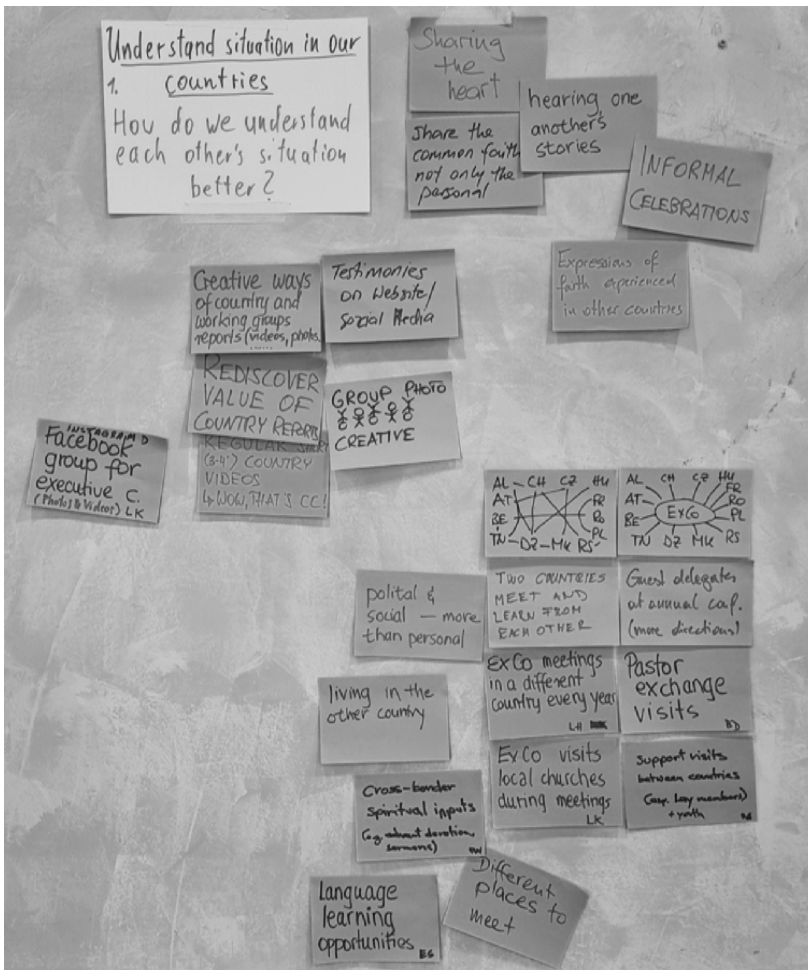 Understand situation in our
1. countries
How do we understand
each other's situation
better?
Sharing
the
heart
Share the
common faith
not only the
personal
hearing one
another's
stories
INFORMAL
CELEBRATIONS
Expressions of
faith experienced
in other countries
Creative ways
of country and
working groups
reports (videos, photos
Testimonies
on Website/
Sozial Media
REDISCOVER
VALUE OF
COUNTRY REPORTS
REGULAR
(3-4') COUNTRY
VIDEOS
↳ WOW, THAT'S CC!
GROUP PHOTO
CREATIVE
INSTAGRAM
Facebook
group for
executive C.
(Photos & Videos) LK
AL CH CZ HU
AT FR
BE RO
PL
TN DZ MK RS
AL CH CZ HU
FR
AT RO
ExCo
BE PL
TN DZ MK RS
polital &
social — more
than personal
TWO COUNTRIES
MEET AND
LEARN FROM
EACH OTHER
Guest delegates
at annual conf.
(more directions)
living in the
other country
ExCo meetings
in a different
country every year
LH
Pastor
exchange
visits
BD
Cross-border
spiritual inputs
(e.g. about devotion,
sermons)
ExCo visits
local churches
during meetings
LK
Support visits
between countries
(esp. lay members)
+ youth
Language
learning
opportunities
ES
Different
places to
meet